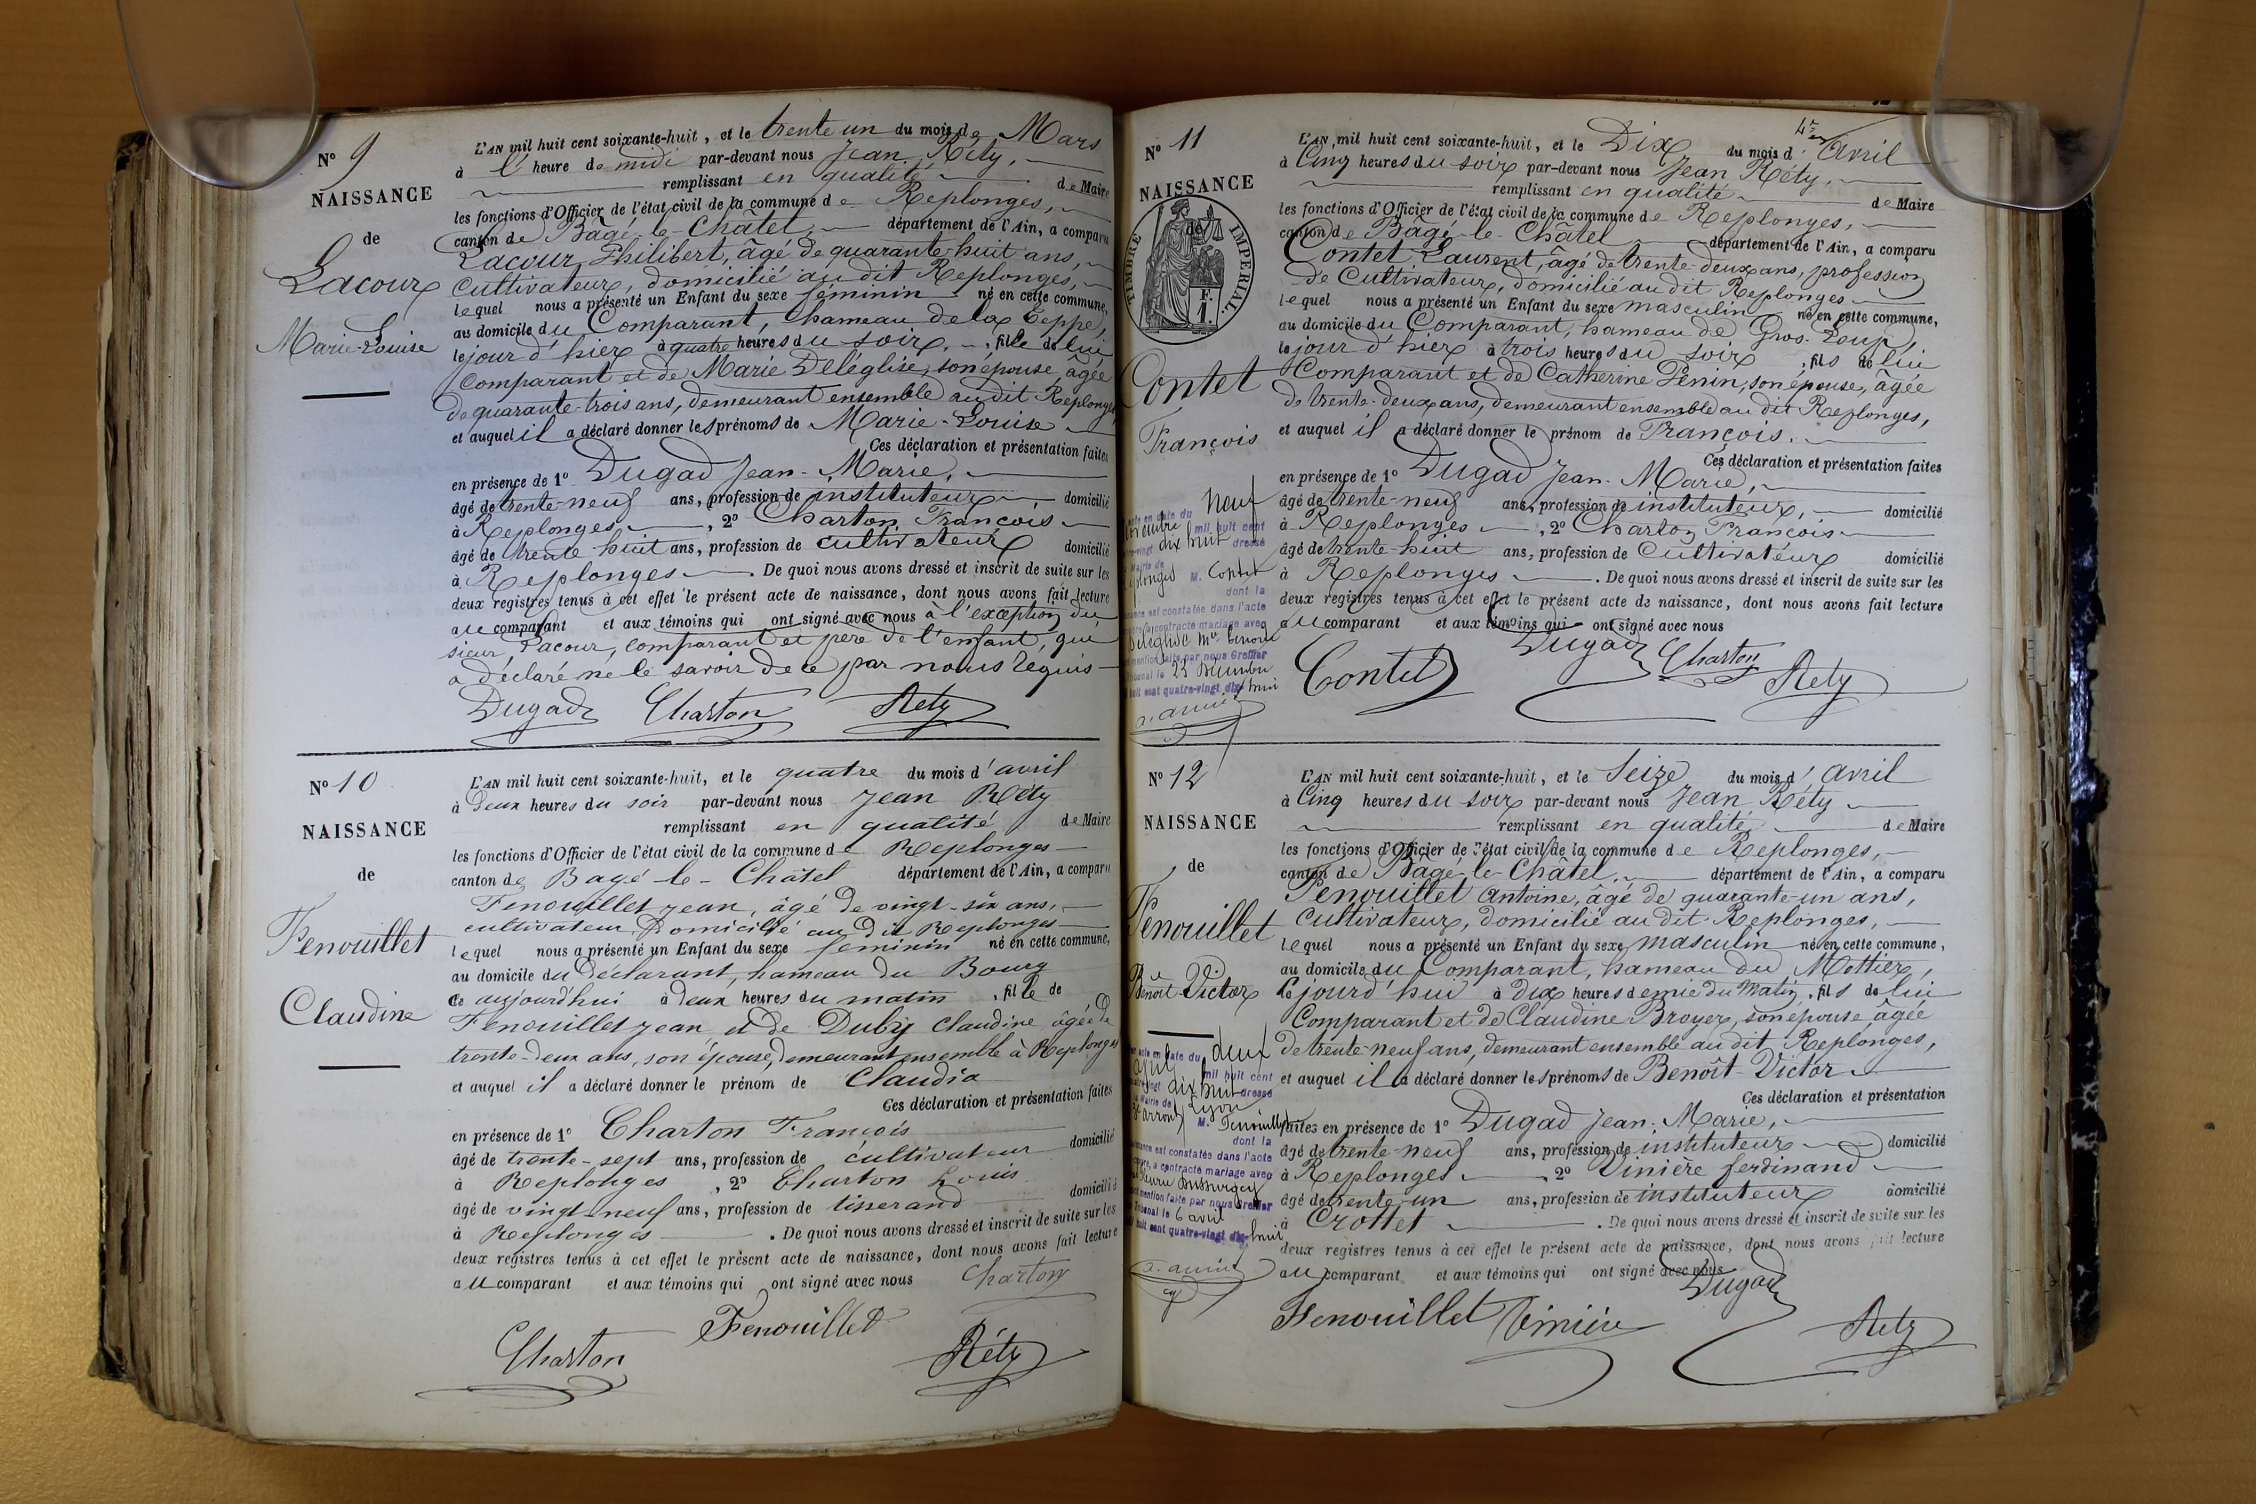 N° 9
NAISSANCE
de
Lacour
Marie-Louise
L'AN mil huit cent soixante-huit, et le trente un du mois de Mars
à l' heure de midi par-devant nous Jean Réty,
remplissant en qualité de Maire
les fonctions d'Officier de l'état civil de la commune de Replonges,
canton de Bâgé-le-Châtel, département de l'Ain, a comparu
Lacour Philibert, âgé de quarante-huit ans,
Cultivateur, domicilié au dit Replonges,
lequel nous a présenté un Enfant du sexe féminin né en cette commune,
au domicile du Comparant, hameau de la Teppe,
le jour d'hier à quatre heures du soir, fille de lui
Comparant et de Marie Deléglise, son épouse, âgée
de quarante-trois ans, demeurant ensemble au dit Replonges,
et auquel il a déclaré donner les prénoms de Marie-Louise
Ces déclaration et présentation faites
en présence de 1° Dugad Jean-Marie,
âgé de trente-neuf ans, profession de instituteur domicilié
à Replonges, , 2° Charton François
âgé de trente huit ans, profession de cultivateur domicilié
à Replonges . De quoi nous avons dressé et inscrit de suite sur les
deux registres tenus à cet effet le présent acte de naissance, dont nous avons fait lecture
au comparant et aux témoins qui ont signé avec nous à l'exception du
sieur Lacour, comparant et père de l'enfant, qui
a déclaré ne le savoir de ce par nous requis
Dugad Charton Réty
N° 10
NAISSANCE
de
Fenouillet
Claudine
L'AN mil huit cent soixante-huit, et le quatre du mois d'avril
à Deux heures du soir par-devant nous Jean Réty
remplissant en qualité de Maire
les fonctions d'Officier de l'état civil de la commune de Replonges
canton de Bagé-le-Châtel département de l'Ain, a comparu
Fenouillet Jean, âgé de vingt-six ans,
cultivateur, Domicilié au dit Replonges
lequel nous a présenté un Enfant du sexe féminin né en cette commune,
au domicile du déclarant, hameau du Bourg
ce aujourd'hui à deux heures du matin , fille de
Fenouillet Jean et de Duby Claudine âgée de
trente-deux ans, son épouse, demeurant ensemble à Replonges
et auquel il a déclaré donner le prénom de Claudia
Ces déclaration et présentation faites
en présence de 1° Charton François
âgé de trente-sept ans, profession de cultivateur domicilié
à Replonges , 2° Charton Louis
âgé de vingt-neuf ans, profession de tisserand domicilié
à Replonges . De quoi nous avons dressé et inscrit de suite sur les
deux registres tenus à cet effet le présent acte de naissance, dont nous avons fait lecture
au comparant et aux témoins qui ont signé avec nous Charton
Fenouillet
Charton Réty
N° 11
NAISSANCE
de
TIMBRE IMPERIAL.
1 F.
Contet
François
L'AN mil huit cent soixante-huit, et le Dix du mois d'Avril
à Cinq heures du soir par-devant nous Jean Réty,
remplissant en qualité de Maire
les fonctions d'Officier de l'état civil de la commune de Replonges,
canton de Bâgé-le-Châtel département de l'Ain, a comparu
Contet Laurent, âgé de trente-deux ans, profession
de Cultivateur, domicilié au dit Replonges
lequel nous a présenté un Enfant du sexe masculin né en cette commune,
au domicile du Comparant, hameau de Gros-Loup,
le jour d'hier à trois heures du soir , fils de lui
Comparant et de Catherine Penin, son épouse, âgée
de trente-deux ans, demeurant ensemble au dit Replonges,
et auquel il a déclaré donner le prénom de François.
Ces déclaration et présentation faites
en présence de 1° Dugad Jean-Marie,
âgé de trente-neuf ans, profession de instituteur, domicilié
à Replonges , 2° Charton François
âgé de trente-huit ans, profession de Cultivateur domicilié
à Replonges . De quoi nous avons dressé et inscrit de suite sur les
deux registres tenus à cet effet le présent acte de naissance, dont nous avons fait lecture
au comparant et aux témoins qui ont signé avec nous
Contet Dugad Charton Réty
en date du neuf
mil huit cent
dix huit dressé
M. Contet
dont la
est constatée dans l'acte
contracté mariage avec
mention faite par nous Greffier
le 23 Décembre
cent quatre-vingt dix huit
N° 12
NAISSANCE
de
Fenouillet
Benoît-Victor
L'AN mil huit cent soixante-huit, et le Seize du mois d'Avril
à Cinq heures du soir par-devant nous Jean Réty
remplissant en qualité de Maire
les fonctions d'Officier de l'état civil de la commune de Replonges,
canton de Bâgé-le-Châtel, département de l'Ain, a comparu
Fenouillet Antoine, âgé de quarante-un ans,
Cultivateur, domicilié au dit Replonges,
lequel nous a présenté un Enfant du sexe masculin né en cette commune,
au domicile du Comparant, hameau du Mottier,
le jourd'hui à dix heures demie du Matin, fils de lui
Comparant et de Claudine Broyer, son épouse âgée
de trente-neuf ans, demeurant ensemble au dit Replonges,
et auquel il a déclaré donner les prénoms de Benoît-Victor
Ces déclaration et présentation
faites en présence de 1° Dugad Jean-Marie,
âgé de trente-neuf ans, profession de instituteur domicilié
à Replonges , 2° Vinière ferdinand
âgé de trente-un ans, profession de instituteur domicilié
à Crottet . De quoi nous avons dressé et inscrit de suite sur les
deux registres tenus à cet effet le présent acte de naissance, dont nous avons fait lecture
au comparant et aux témoins qui ont signé avec nous
Fenouillet Vinière Dugad Réty
acte en date du deux
avril mil huit cent
dix huit dressé
Mairie de Lyon
M. Fenouillet
dont la
est constatée dans l'acte
a contracté mariage avec
mention faite par nous Greffier
le 6 avril
cent quatre-vingt dix-huit